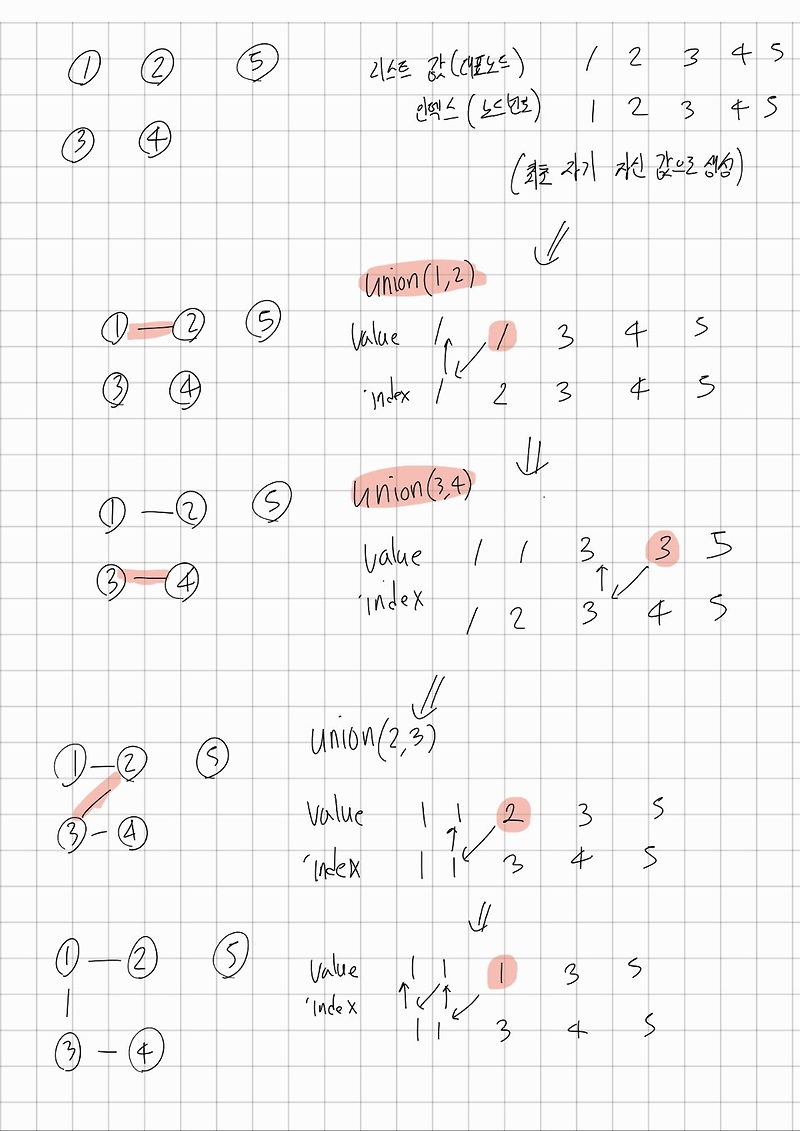 ① ② ⑤
리스트 값(대표노드) 1 2 3 4 5
인덱스(노드번호) 1 2 3 4 5
③ ④
(최초 자기 자신 값으로 생성)
union(1,2)
① ② ⑤
value 1 1 3 4 5
③ ④
index 1 2 3 4 5
union(3,4)
① ② ⑤
value 1 1 3 3 5
③ ④
index 1 2 3 4 5
union(2,3)
① ② ⑤
value 1 1 2 3 5
③ ④
index 1 1 3 4 5
① ② ⑤
value 1 1 1 3 5
index 1 1 3 4 5
③ ④